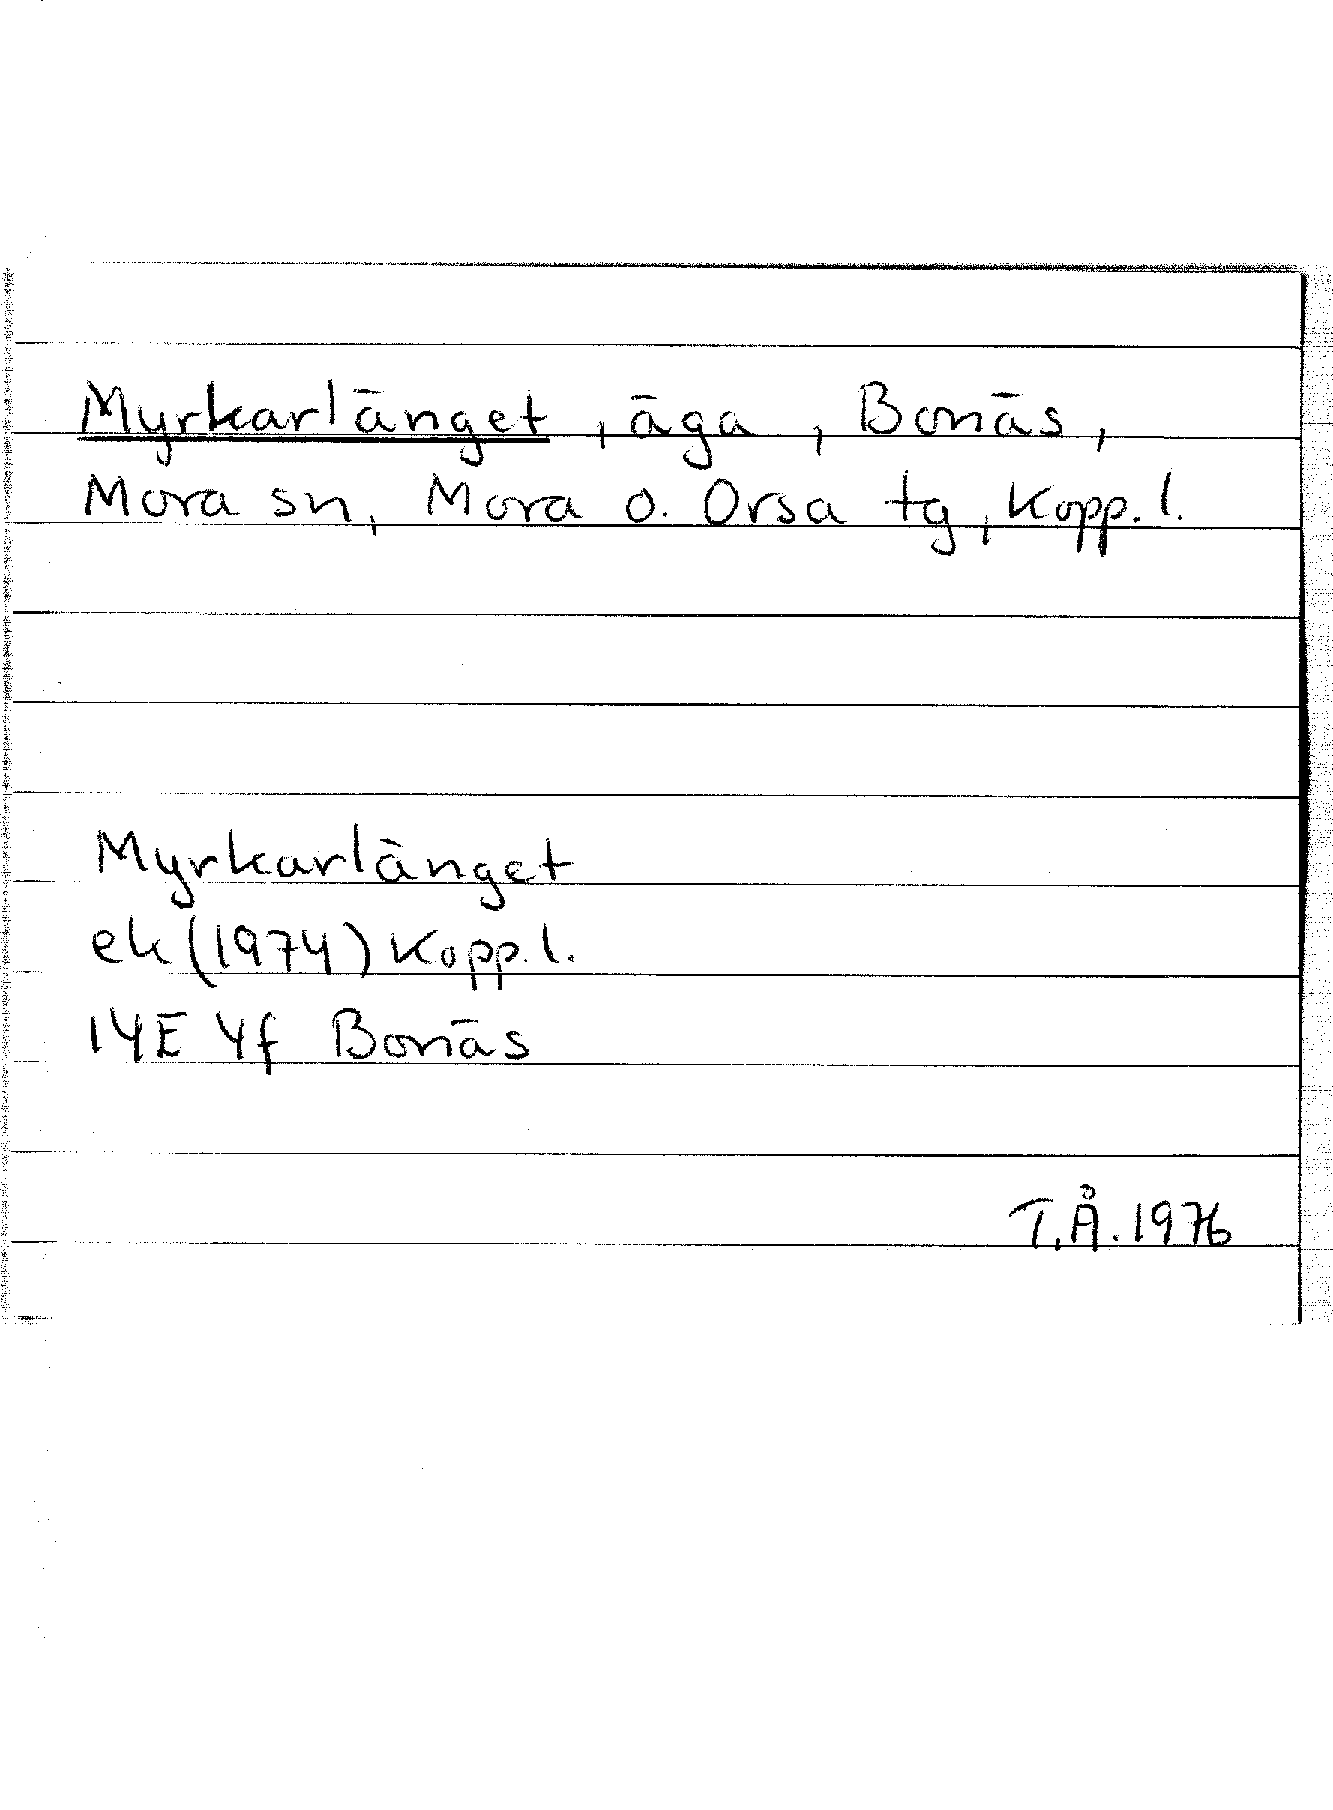 Myrkarlänget, äga, Bonäs,
Mora sn, Mora o. Orsa tg, Kopp. l.
Myrkarlänget
ek (1974) Kopp. l.
14E 4f Bonäs
T.Å. 1976